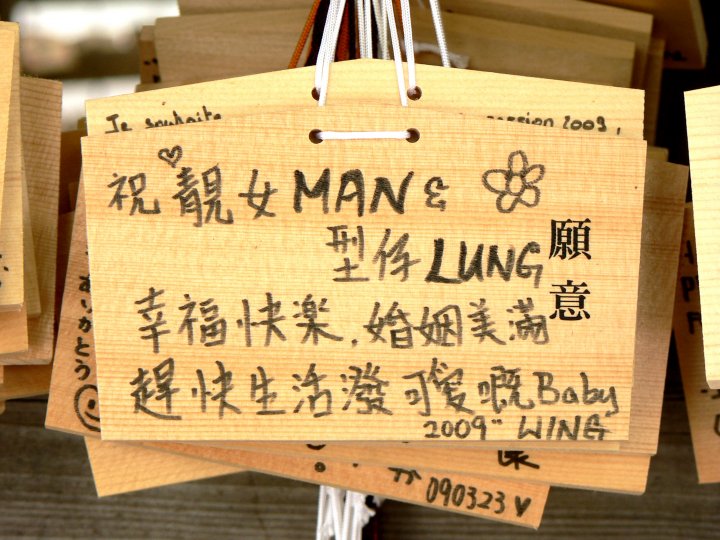 Je souhaite
ession 2009,
祝靚女MAN &
型仔LUNG
願意
幸福快楽,婚姻美滿
趕快生活潑可愛嘅Baby
2009" WING
ありがとう
090323